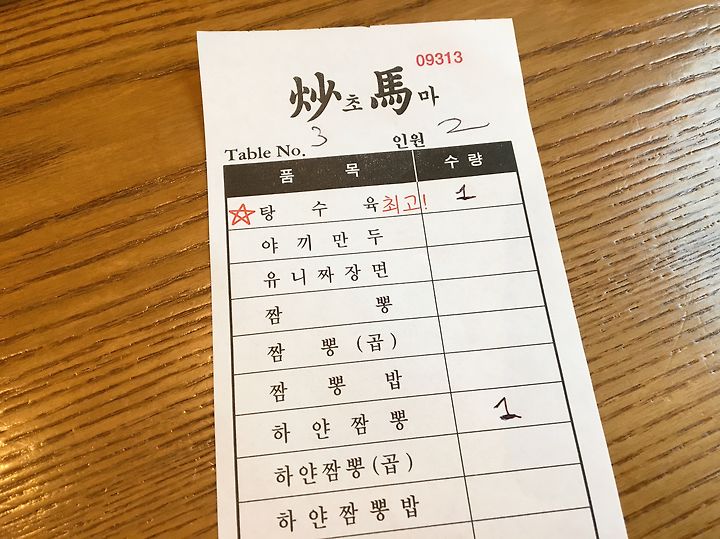 09313
炒초馬마
Table No. 3 인원 2
품목 수량
☆탕수육 최고! 1
야끼만두
유니짜장면
짬뽕
짬뽕(곱)
짬뽕밥
하얀짬뽕 1
하얀짬뽕(곱)
하얀짬뽕밥